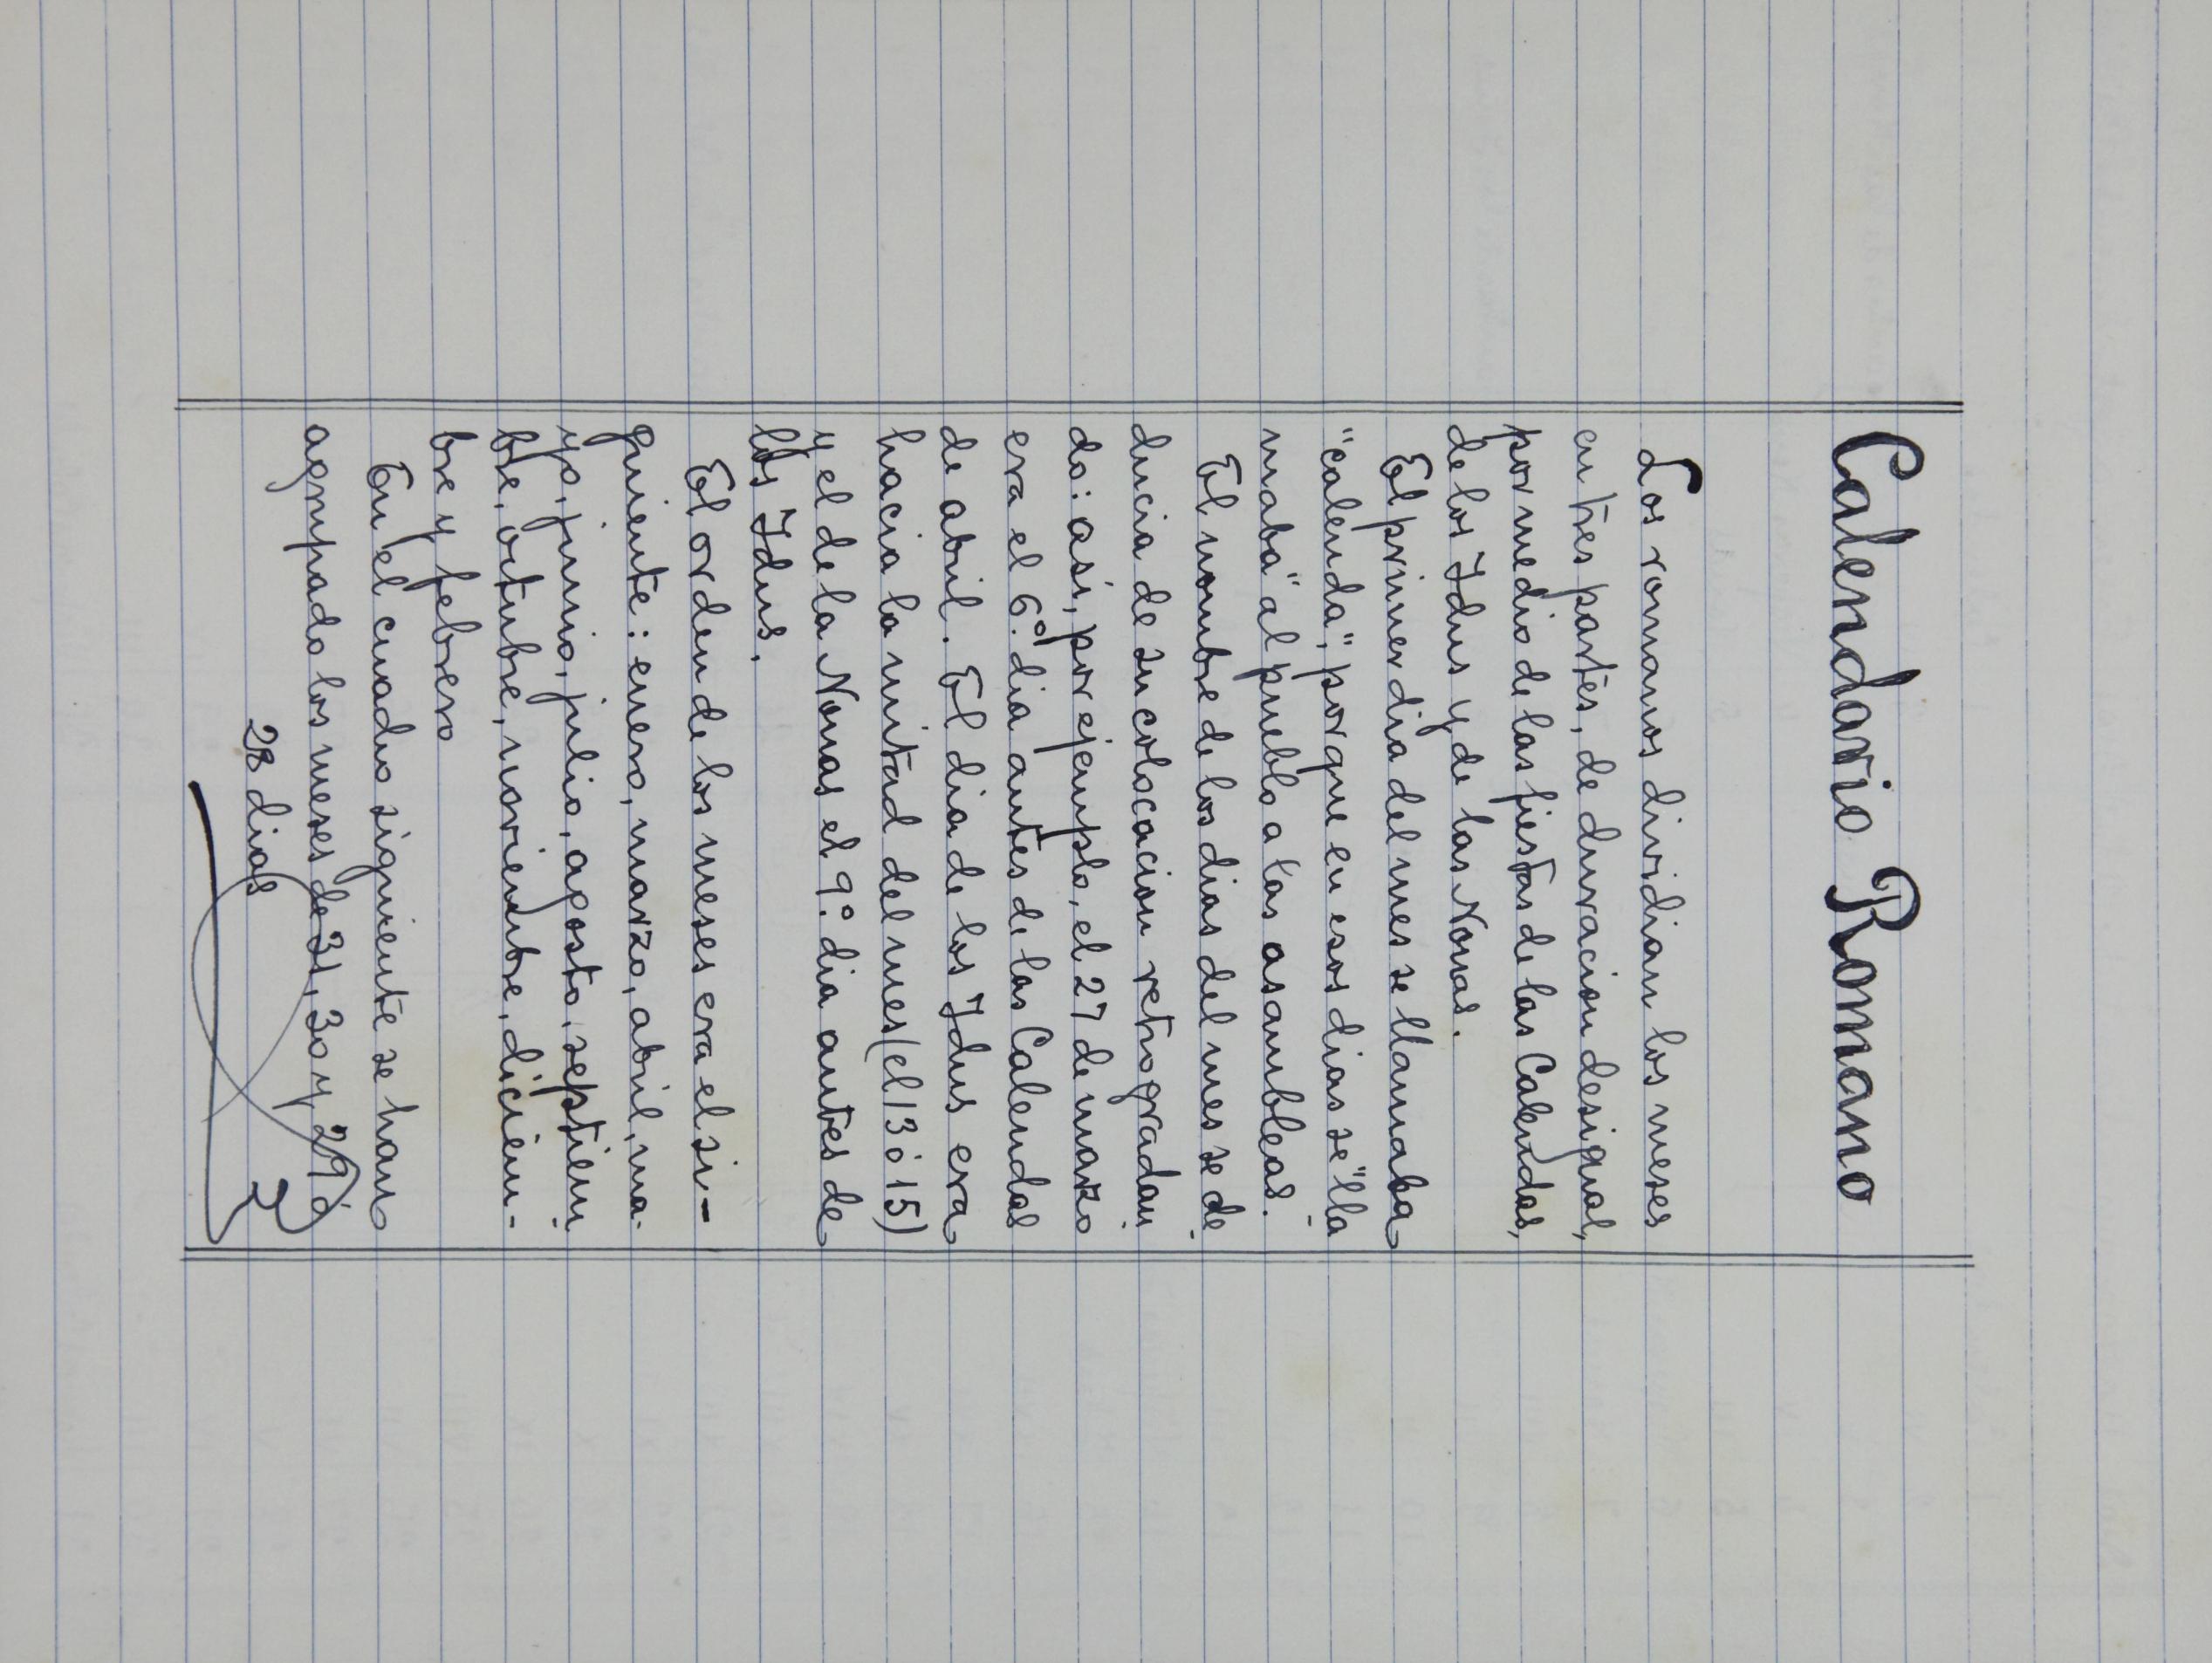 Calendario Romano
Los romanos dividian los meses
en tres partes, de duracion desigual,
por medio de las fiestas de las Calendas,
de los Idus y de las Nonas.
El primer dia del mes se llamaba
"calenda", porque en esos dias se "lla-
maba" al pueblo a las asambleas.
El nombre de los dias del mes se de-
ducia de su colocacion retrogradan-
do: asi, por ejemplo, el 27 de marzo
era el 6º dia antes de las Calendas
de abril. El dia de los Idus era
hacia la mitad del mes (el 13 ó 15)
y el de la Nonas el 9º dia antes de
los Idus.
El orden de los meses era el si-
guiente: enero, marzo, abril, ma-
yo, junio, julio, agosto, septiem-
bre, octubre, noviembre, diciem-
bre y febrero
En el cuadro siguiente se han
agrupado los meses de 31, 30 y 29 ó
28 dias